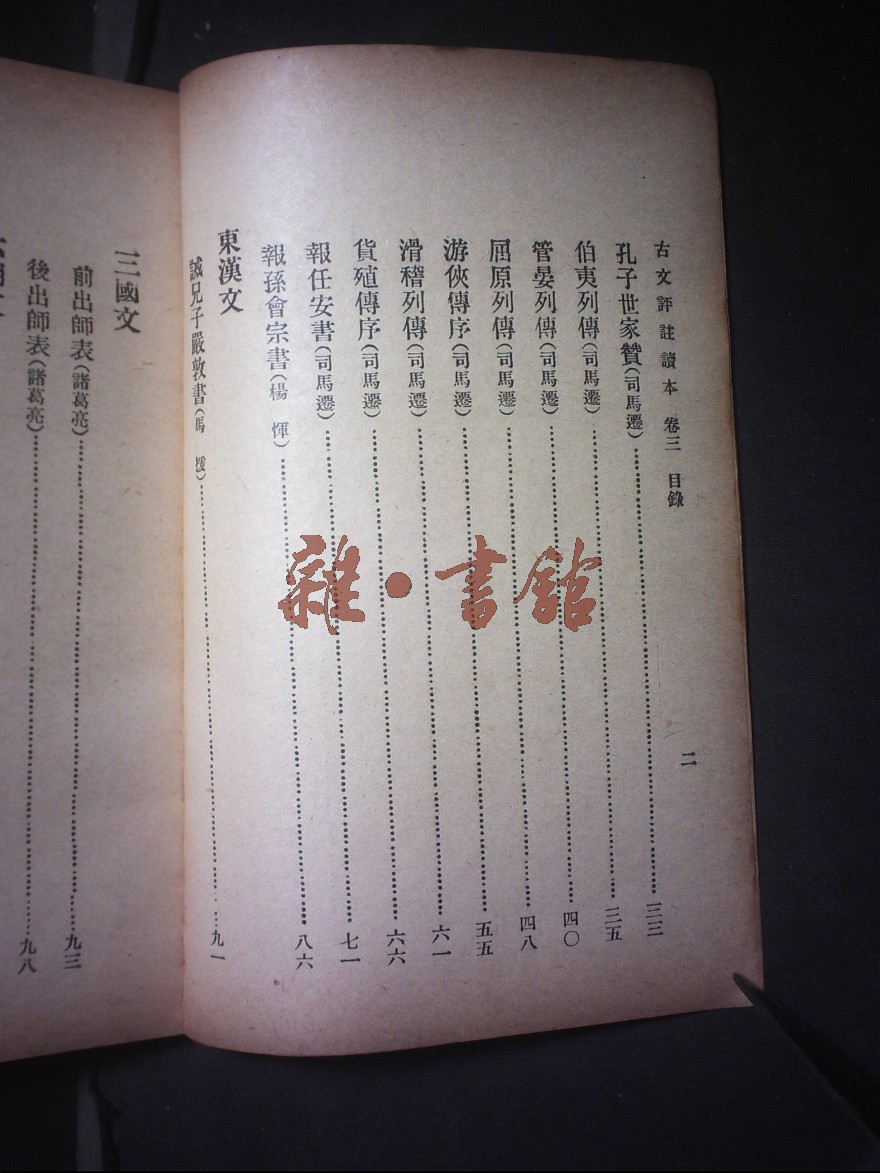 古文評註讀本 卷三 目錄 二
孔子世家贊(司馬遷)……三三
伯夷列傳(司馬遷)……三五
管晏列傳(司馬遷)……四〇
屈原列傳(司馬遷)……四八
游俠傳序(司馬遷)……五五
滑稽列傳(司馬遷)……六一
貨殖傳序(司馬遷)……六六
報任安書(司馬遷)……七一
報孫會宗書(楊 惲)……八六
東漢文
誡兄子嚴敦書(馬 援)……九一
三國文
前出師表(諸葛亮)……九三
後出師表(諸葛亮)……九八
雜·書館